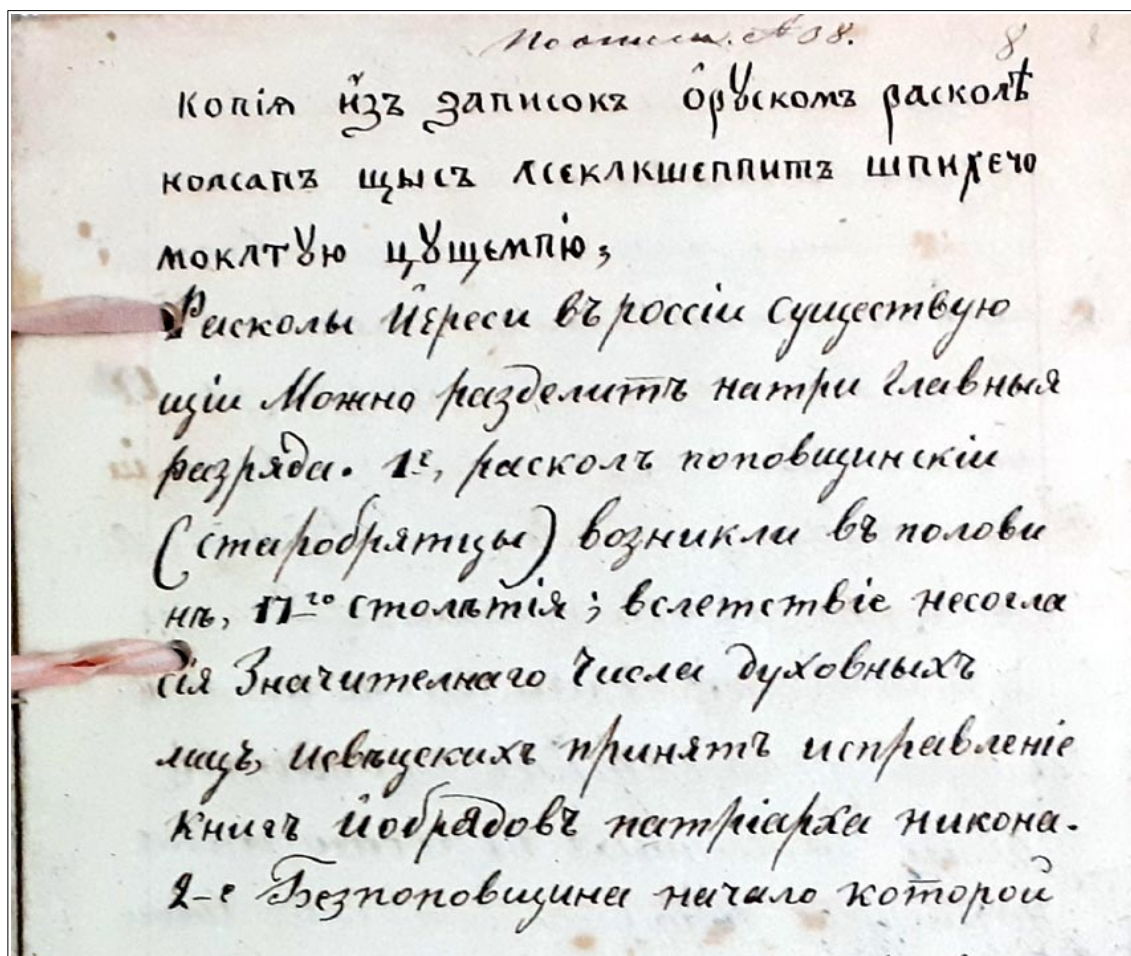 По описи. № 38. 8
копїѧ и҆зъ записокъ о҆рꙋскомъ расколѣ
колсапъ щысъ лсєклкшєппитъ шпихєчо
моклтꙋю цꙋщємпїю;
Расколы и҆єреси въ россіи существую
щіи Можно разделитъ натри главныя
разряда. 1е, расколъ поповщинскіи
(старобрятцы) возникли въ полови
нѣ, 17го столѣтія; вслетствіе несогла
сія Значителнаго числа духовныхъ
лицъ, исвѣцскихъ принятъ исправленіе
книгъ и҆обрядовъ патріарха никона.
2-е Безпоповщина начало которой